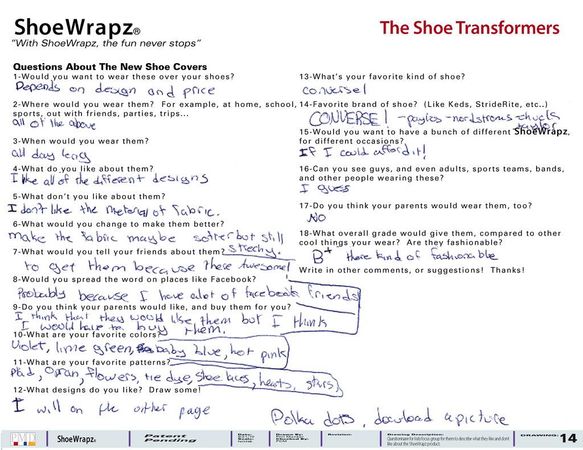 ShoeWrapz®
The Shoe Transformers
"With ShoeWrapz, the fun never stops"
Questions About The New Shoe Covers
1-Would you want to wear these over your shoes?
Depends on design and price
2-Where would you wear them? For example, at home, school,
sports, out with friends, parties, trips...
all of the above
3-When would you wear them?
all day long
4-What do you like about them?
I like all of the different designs
5-What don't you like about them?
I don't like the material of fabric.
6-What would you change to make them better?
make the fabric maybe softer but still
strechy.
7-What would you tell your friends about them?
to get them because there awesome!
8-Would you spread the word on places like Facebook?
Probably because I have alot of facebook friends
9-Do you think your parents would like, and buy them for you?
I think that they would like them but I think
I would have to buy them.
10-What are your favorite colors?
violet, lime green, baby blue, hot pink
11-What are your favorite patterns?
plaid, flowers, tie dye, shoe laces, hearts, stars
12-What designs do you like? Draw some!
I will on the other page
13-What's your favorite kind of shoe?
converse!
14-Favorite brand of shoe? (Like Keds, StrideRite, etc..)
CONVERSE! - payless - nordstroms - chuck
taylor
15-Would you want to have a bunch of different ShoeWrapz,
for different occasions?
If I could afford it!
16-Can you see guys, and even adults, sports teams, bands,
and other people wearing these?
I guess
17-Do you think your parents would wear them, too?
NO
18-What overall grade would you give them, compared to other
cool things your wear? Are they fashionable?
B+ there kind of fashionable
Write in other comments, or suggestions! Thanks!
Polka dots, download a picture
ShoeWrapz
Patent
Pending
Revision:
Drawing Description:
Questionnaire for kids focus group for them to describe what they like and don't
like about the ShoeWrapz product
DRAWING:
14